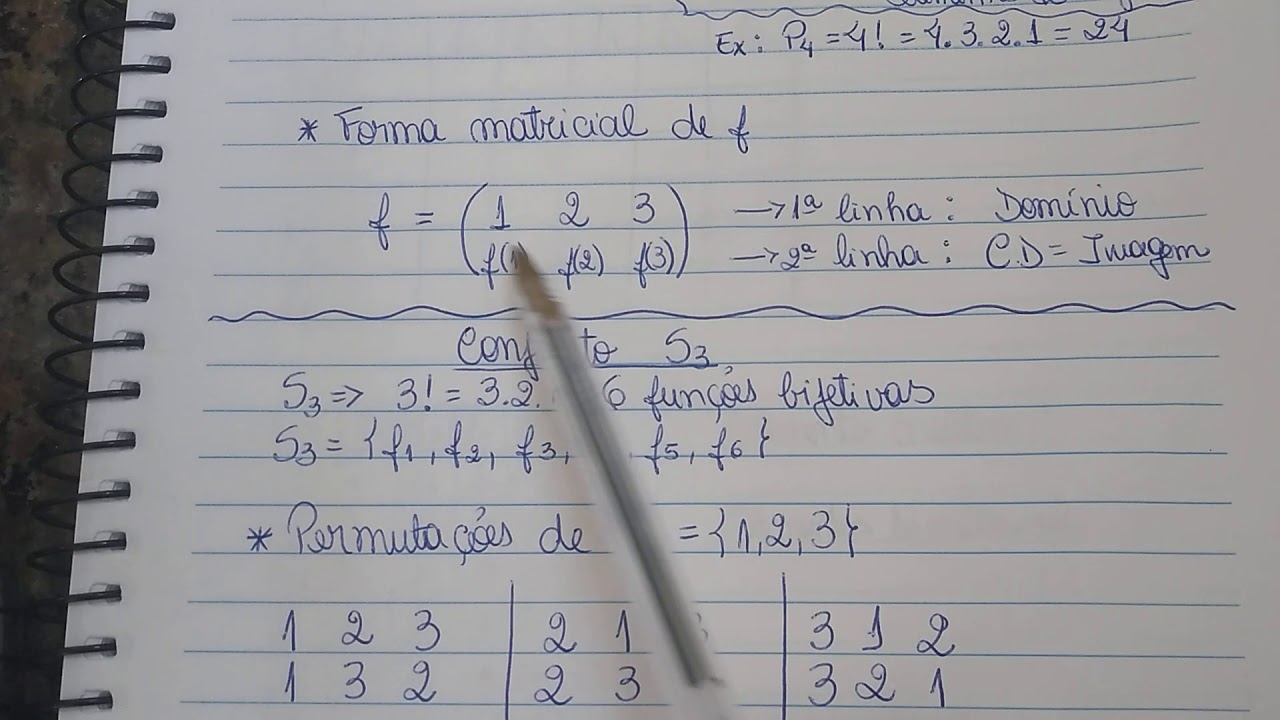 Ex: P4 = 4! = 4.3.2.1 = 24
* Forma matricial de f
f = ( 1 2 3 ) → 1ª linha: Domínio
( f(1) f(2) f(3) ) → 2ª linha: C.D = Imagem
S3
S3 => 3! = 3.2. 6 funções bijetivas
S3 = {f1, f2, f3, f5, f6}
* Permutações de = {1,2,3}
1 2 3 | 2 1 | 3 1 2
1 3 2 | 2 3 | 3 2 1